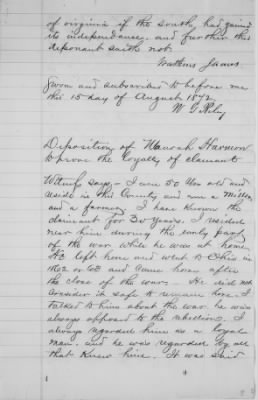 of virginia if the south, had gained
its independence, and further this
deponant saith not
Watkins James
Sworn and subscribed to before me
this 15 day of August 1872
W G Riley
Deposition of Manoah Harmon
to prove the loyalty of claimant
Witness says,- I am 50 Years old and
reside in this County and am a Miller
and a farmer, I have known the
claimant for 30 Years. I resided
near him during the early part
of the war while he was at home
He left here and went to Ohio in
1862 or 63 and came home after
the close of the war- He did not
consider it safe to remain here. I
talked to him about the war he was
always opposed to the rebellion, I
always regarded him as a loyal
man, and he was regarded by all
that knew him. It was said